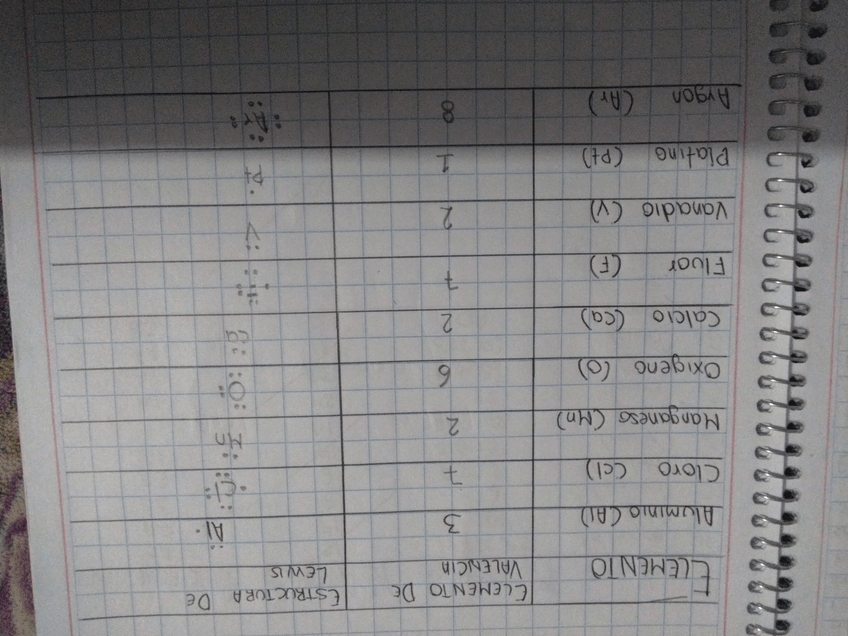 ELEMENTO
ELEMENTO DE
VALENCIA
ESTRUCTURA DE
LEWIS
Aluminio (Al) 3 Al
Cloro (Cl) 7 Cl
Manganeso (Mn) 2 Mn
Oxigeno (O) 6 O
Calcio (Ca) 2 Ca
Fluor (F) 7 F
Vanadio (V) 2 V
Platino (Pt) 1 Pt
Argon (Ar) 8 Ar